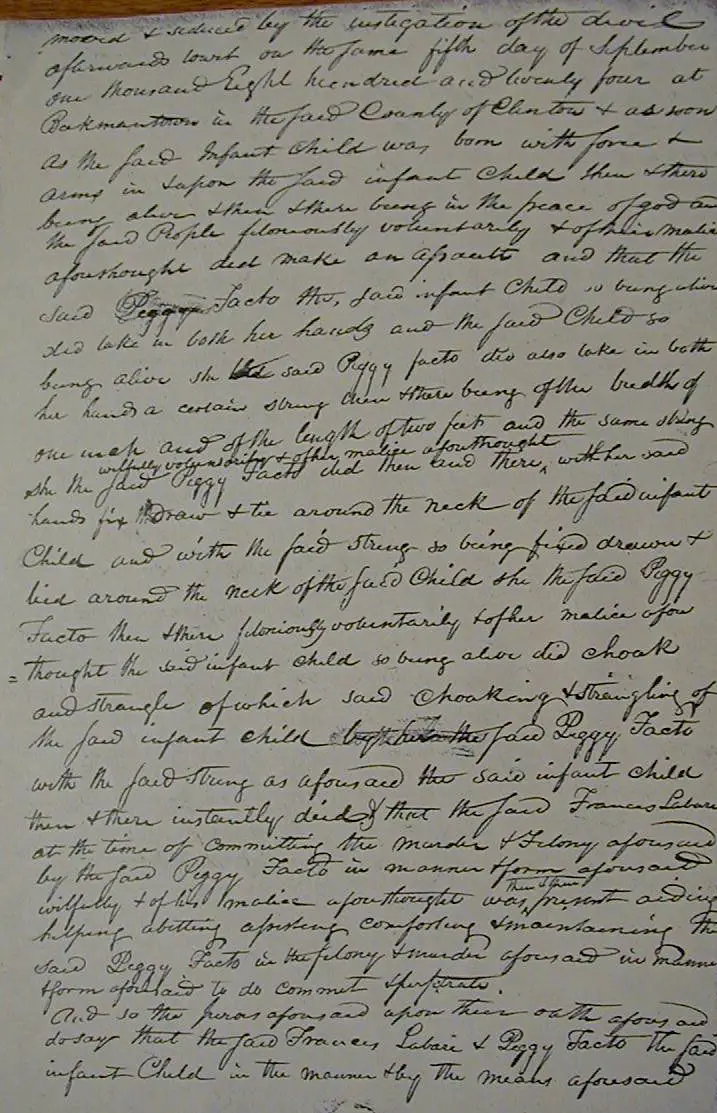 moved & seduced by the instigation of the devil
afterwards towit on the same fifth day of September
one thousand Eight hundred and twenty four at
Beekmantown in the said County of Clinton & as soon
as the said Infant Child was born with force &
arms in & upon the said infant Child then & there
being alive & then & there being in the peace of god an
the said People feloniously voluntarily & of their malice
aforethought did make an assault and that the
said Peggy Facto the, said infant Child so being alive
did take in both her hands and the said Child so
being alive she said Peggy facto did also take in both
her hands a certain string then & there being of the bredth of
one inch and of the length of two feet and the same string
wilfully voluntarily & of her malice aforethought
she the said Peggy Facto did then and there, with her said
hands fix draw & tie around the neck of the said infant
Child and with the said string so being fixed drawn &
tied around the neck of the said Child she the said Peggy
Facto then & there feloniously voluntarily & of her malice afore
= thought the said infant child so being alive did choak
and strangle of which said choaking & strangling of
the said infant child by the said Peggy Facto
with the said string as aforesaid the said infant child
then & there instantly died & that the said Francis Labare
at the time of committing the murder & Felony aforesaid
by the said Peggy Facto in manner & form aforesaid
then & there
wilfully & of his malice aforethought was present aiding
helping abetting assisting comforting & maintaining the
said Peggy Facto in the felony & murder aforesaid in manner
& form aforesaid to do commit & perpetrate.
And so the jurors aforesaid upon their oath aforesaid
do say that the said Frances Labare & Peggy Facto the said
infant Child in the manner & by the means aforesaid